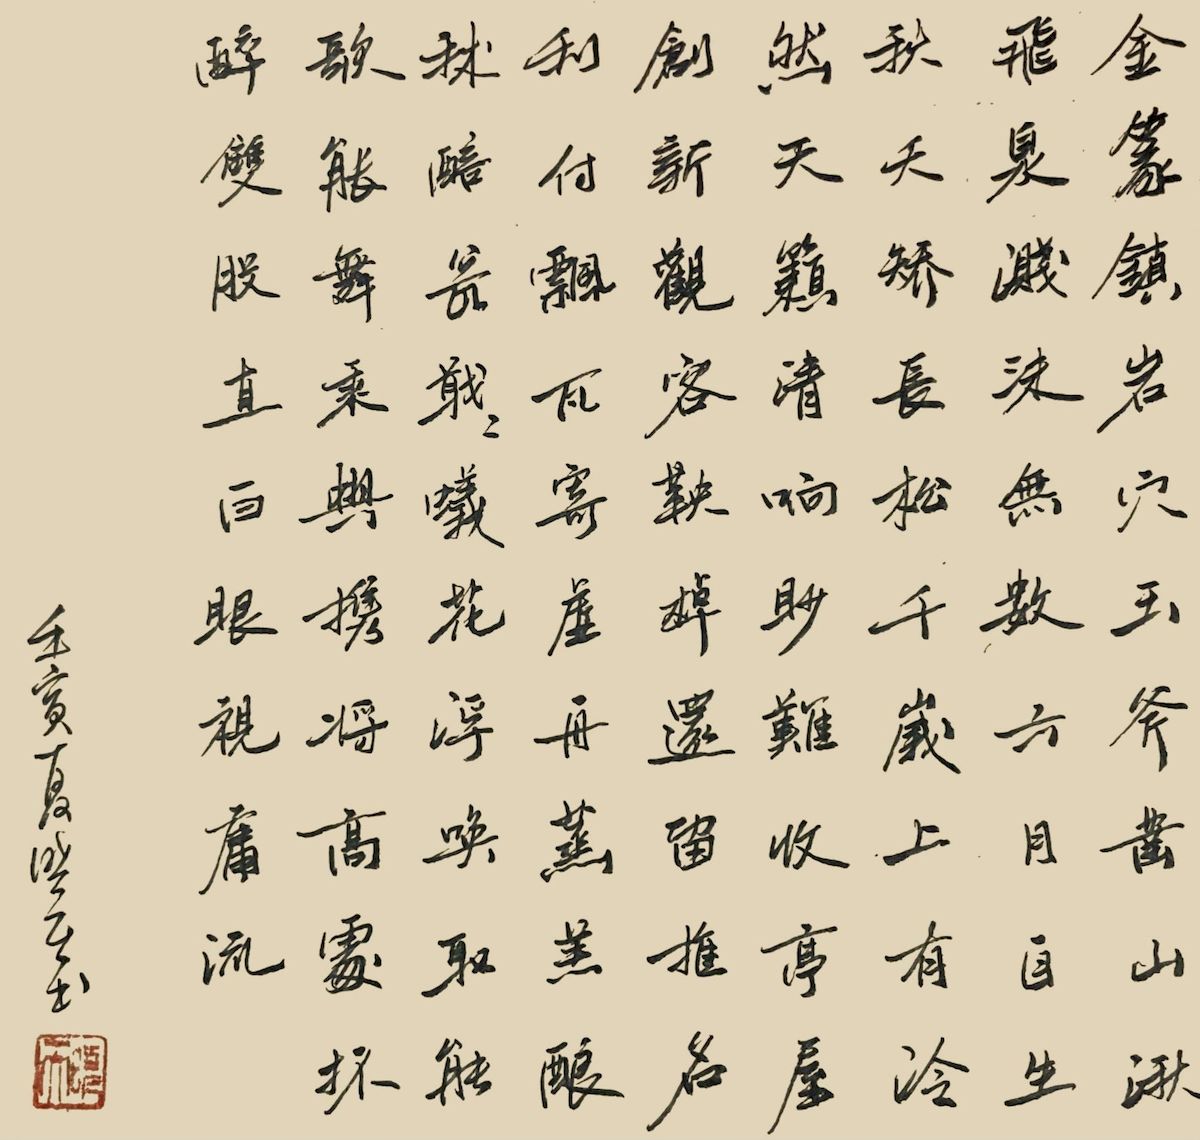 金篆鎮岩穴玉斧凿山湫
飛泉濺沫無數六月自生
秋夭矯長松千歲上有冷
然天籟清响眇難收亭屋
創新觀客鞅棹還留推名
利付飄瓦寄虛舟蒸羔釀
秫醅瓮戢〻蟻花浮唤取能
歌能舞乘興携将高處杯
醉雙股直白眼視庸流
壬寅夏书